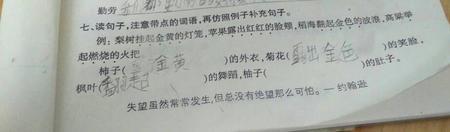 勤劳
七、读句子,注意带点的词语,再仿照例子补充句子。
例:梨树挂起金黄的灯笼,苹果露出红红的脸颊,稻海翻起金色的波浪,高粱举
起燃烧的火把。
柿子( 金黄 )的外衣,菊花(露出金色)的笑脸,
枫叶( )的舞蹈,柚子( )的肚子。
失望虽然常常发生,但总没有绝望那么可怕。—约翰逊